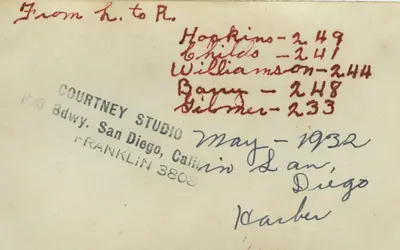 From L. to R.
Hopkins-249
Childs - 241
Williamson-244
Barry - 248
Gilmer-233
COURTNEY STUDIO
Bdwy. San Diego, Calif
FRANKLIN 3803
May-1932
in San,
Diego
Harber